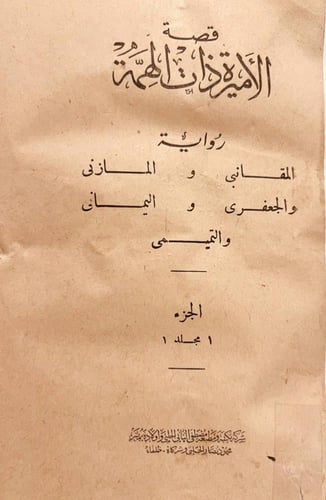 قصة
الأميرة ذات الهمة
رواية
المقانبى و المازنى
والجعفرى و اليمانى
والتميمى
الجزء
١ مجلد ١
شركة مكتبة ومطبعة مصطفى البابى الحلبى وأولاده بمصر
محمود نصار الحلبى وشركاه - خلفاء